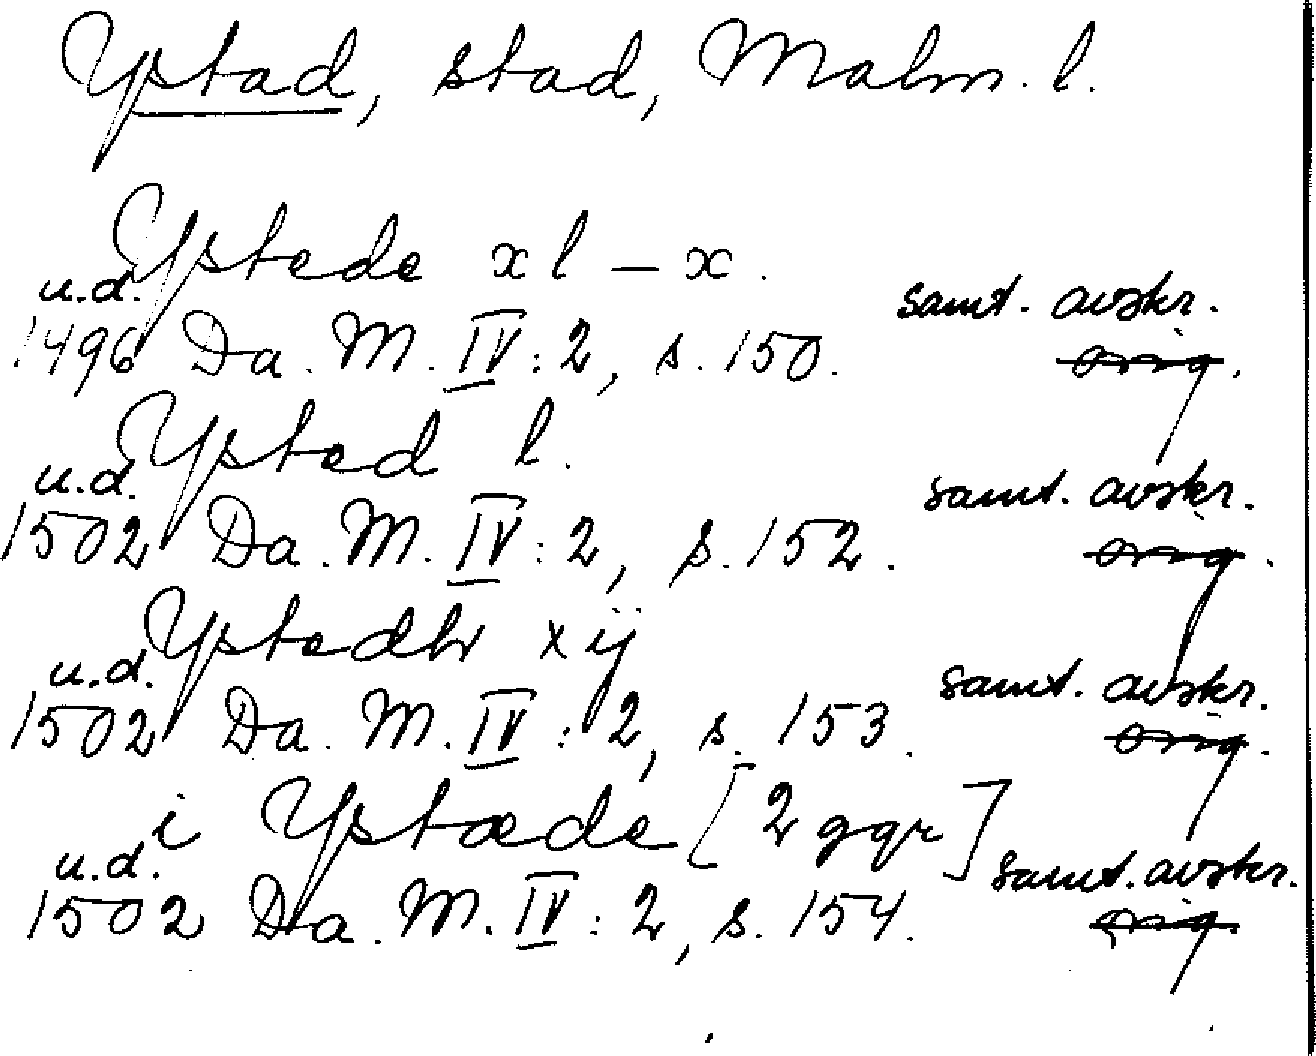 Ystad, stad, Malm. l.
Ystede xl – x.
u.d. samt. avskr.
1496 Da. M. IV: 2, s. 150. orig.
Ysted l.
u.d. samt. avskr.
1502 Da. M. IV: 2, s. 152. orig.
Ystedhr xij
u.d. samt. avskr.
1502 Da. M. IV: 2, s. 153. orig.
i Ystæde [2 ggr]
u.d. samt. avskr.
1502 Da. M. IV: 2, s. 154. orig